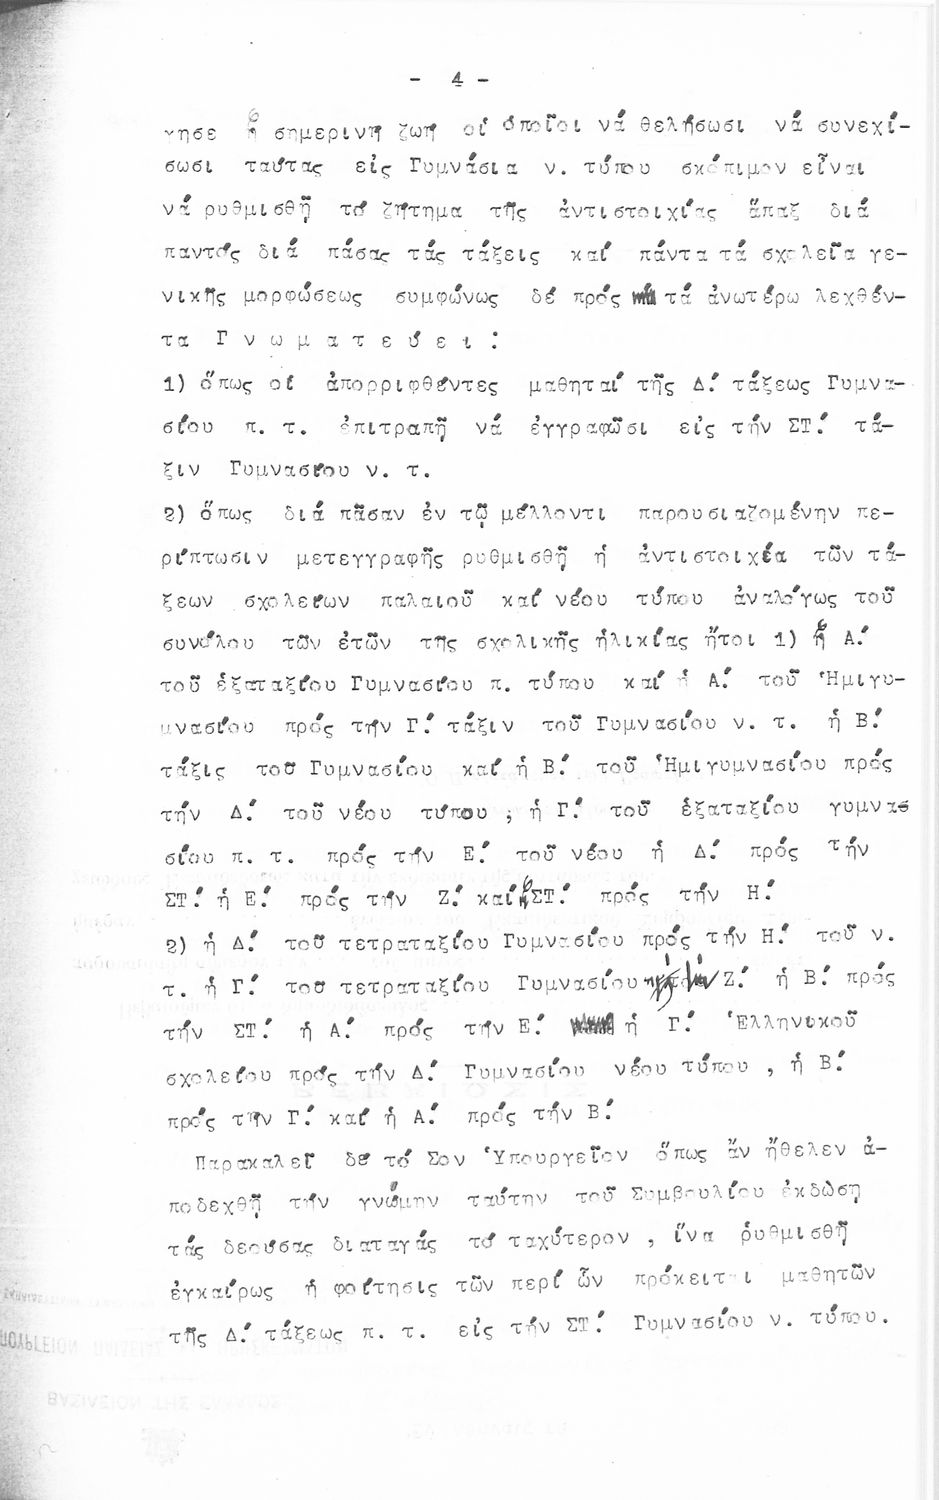 - 4 -
γησε ἡ σημερινή ζωή οἱ ὁποῖοι νά θελήσωσι νά συνεχί-
σωσι ταύτας εἰς Γυμνάσια ν. τύπου σκόπιμον εἶναι
νά ρυθμισθῇ τό ζήτημα τῆς ἀντιστοιχίας ἅπαξ διά
παντός διά πάσας τάς τάξεις καί πάντα τά σχολεῖα γε-
νικῆς μορφώσεως συμφώνως δέ πρός τά ἀνωτέρω λεχθέν-
τα Γ ν ω μ α τ ε ύ ε ι :
1) ὅπως οἱ ἀπορριφθέντες μαθηταί τῆς Δ.' τάξεως Γυμνα-
σίου π. τ. ἐπιτραπῇ νά ἐγγραφῶσι εἰς τήν ΣΤ.' τά-
ξιν Γυμνασίου ν. τ.
2) ὅπως διά πᾶσαν ἐν τῷ μέλλοντι παρουσιαζομένην πε-
ρίπτωσιν μετεγγραφῆς ρυθμισθῇ ἡ ἀντιστοιχία τῶν τά-
ξεων σχολείων παλαιοῦ καί νέου τύπου ἀναλόγως τοῦ
συνόλου τῶν ἐτῶν τῆς σχολικῆς ἡλικίας ἤτοι 1) ἡ Α.'
τοῦ ἑξαταξίου Γυμνασίου π. τύπου καί ἡ Α.' τοῦ Ἡμιγυ-
μνασίου πρός τήν Γ.' τάξιν τοῦ Γυμνασίου ν. τ. ἡ Β.'
τάξις τοῦ Γυμνασίου καί ἡ Β.' τοῦ Ἡμιγυμνασίου πρός
τήν Δ.' τοῦ νέου τύπου , ἡ Γ.' τοῦ ἑξαταξίου γυμνα-
σίου π. τ. πρός τήν Ε.' τοῦ νέου ἡ Δ.' πρός τήν
ΣΤ.' ἡ Ε.' πρός τήν Ζ.' καί ἡ ΣΤ.' πρός τήν Η.'
2) ἡ Δ.' τοῦ τετραταξίου Γυμνασίου πρός τήν Η.' τοῦ ν.
τ. ἡ Γ.' τοῦ τετραταξίου Γυμνασίου πρός τήν Ζ.' ἡ Β.' πρός
τήν ΣΤ.' ἡ Α.' πρός τήν Ε.' ἡ Γ.' Ἑλληνικοῦ
σχολείου πρός τήν Δ.' Γυμνασίου νέου τύπου , ἡ Β.'
πρός τήν Γ.' καί ἡ Α.' πρός τήν Β.'
Παρακαλεῖ δέ τό Σον Ὑπουργεῖον ὅπως ἄν ἤθελεν ἀ-
ποδεχθῇ τήν γνώμην ταύτην τοῦ Συμβουλίου ἐκδώση
τάς δεούσας διαταγάς τό ταχύτερον , ἵνα ῥυθμισθῇ
ἐγκαίρως ἡ φοίτησις τῶν περί ὧν πρόκειται μαθητῶν
τῆς Δ.' τάξεως π. τ. εἰς τήν ΣΤ.' Γυμνασίου ν. τύπου.